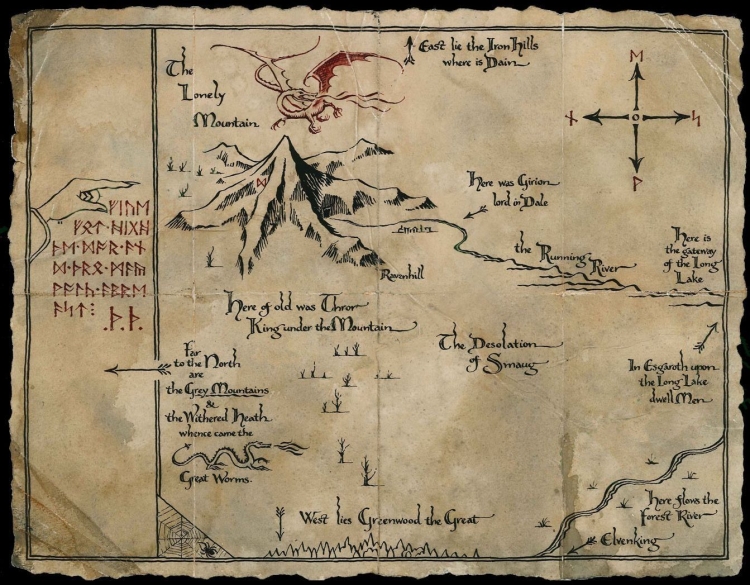 East lie the Iron Hills
where is Dain
The
Lonely
Mountain
ᛖ
ᚾ
ᛋ
ᚹ
ᛞ
Here was Girion
lord in Dale
ᚠᛁᚢᛖ
ᚠᛟᛏ·ᚻᛁᚷᚻ
ᚦᛖ·ᛞᚩᚱ·ᚪᚾ
ᛞ·ᚦᚱᛟ·ᛗᚪᚣ
ᚹᚪᛚᚳ·ᚪᛒᚱᛖ
ᚪᛋᛏ⁝
.ᚦ.ᚦ.
Here is
the gateway
of the Long
Lake
the Running
River
Ravenhill
Here of old was Thror
King under the Mountain
The Desolation
of Smaug
Far
to the North
are
the Grey Mountains
&
the Withered Heath
whence came the
Great Worms.
In Esgaroth upon
the Long Lake
dwell Men
Here flows the
Forest River
Elvenking
West lies Greenwood the Great